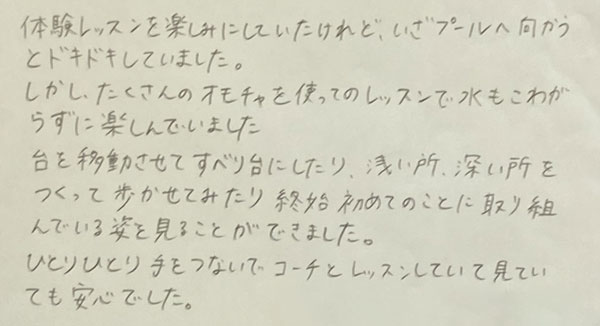 体験レッスンを楽しみにしていたけれど、いざプールへ向かう
とドキドキしていました。
しかし、たくさんのオモチャを使ってのレッスンで水もこわが
らずに楽しんでいました
台を移動させてすべり台にしたり、浅い所、深い所を
つくって歩かせてみたり終始初めてのことに取り組
んでいる姿を見ることができました。
ひとりひとり手をつないでコーチとレッスンしていて見てい
ても安心でした。